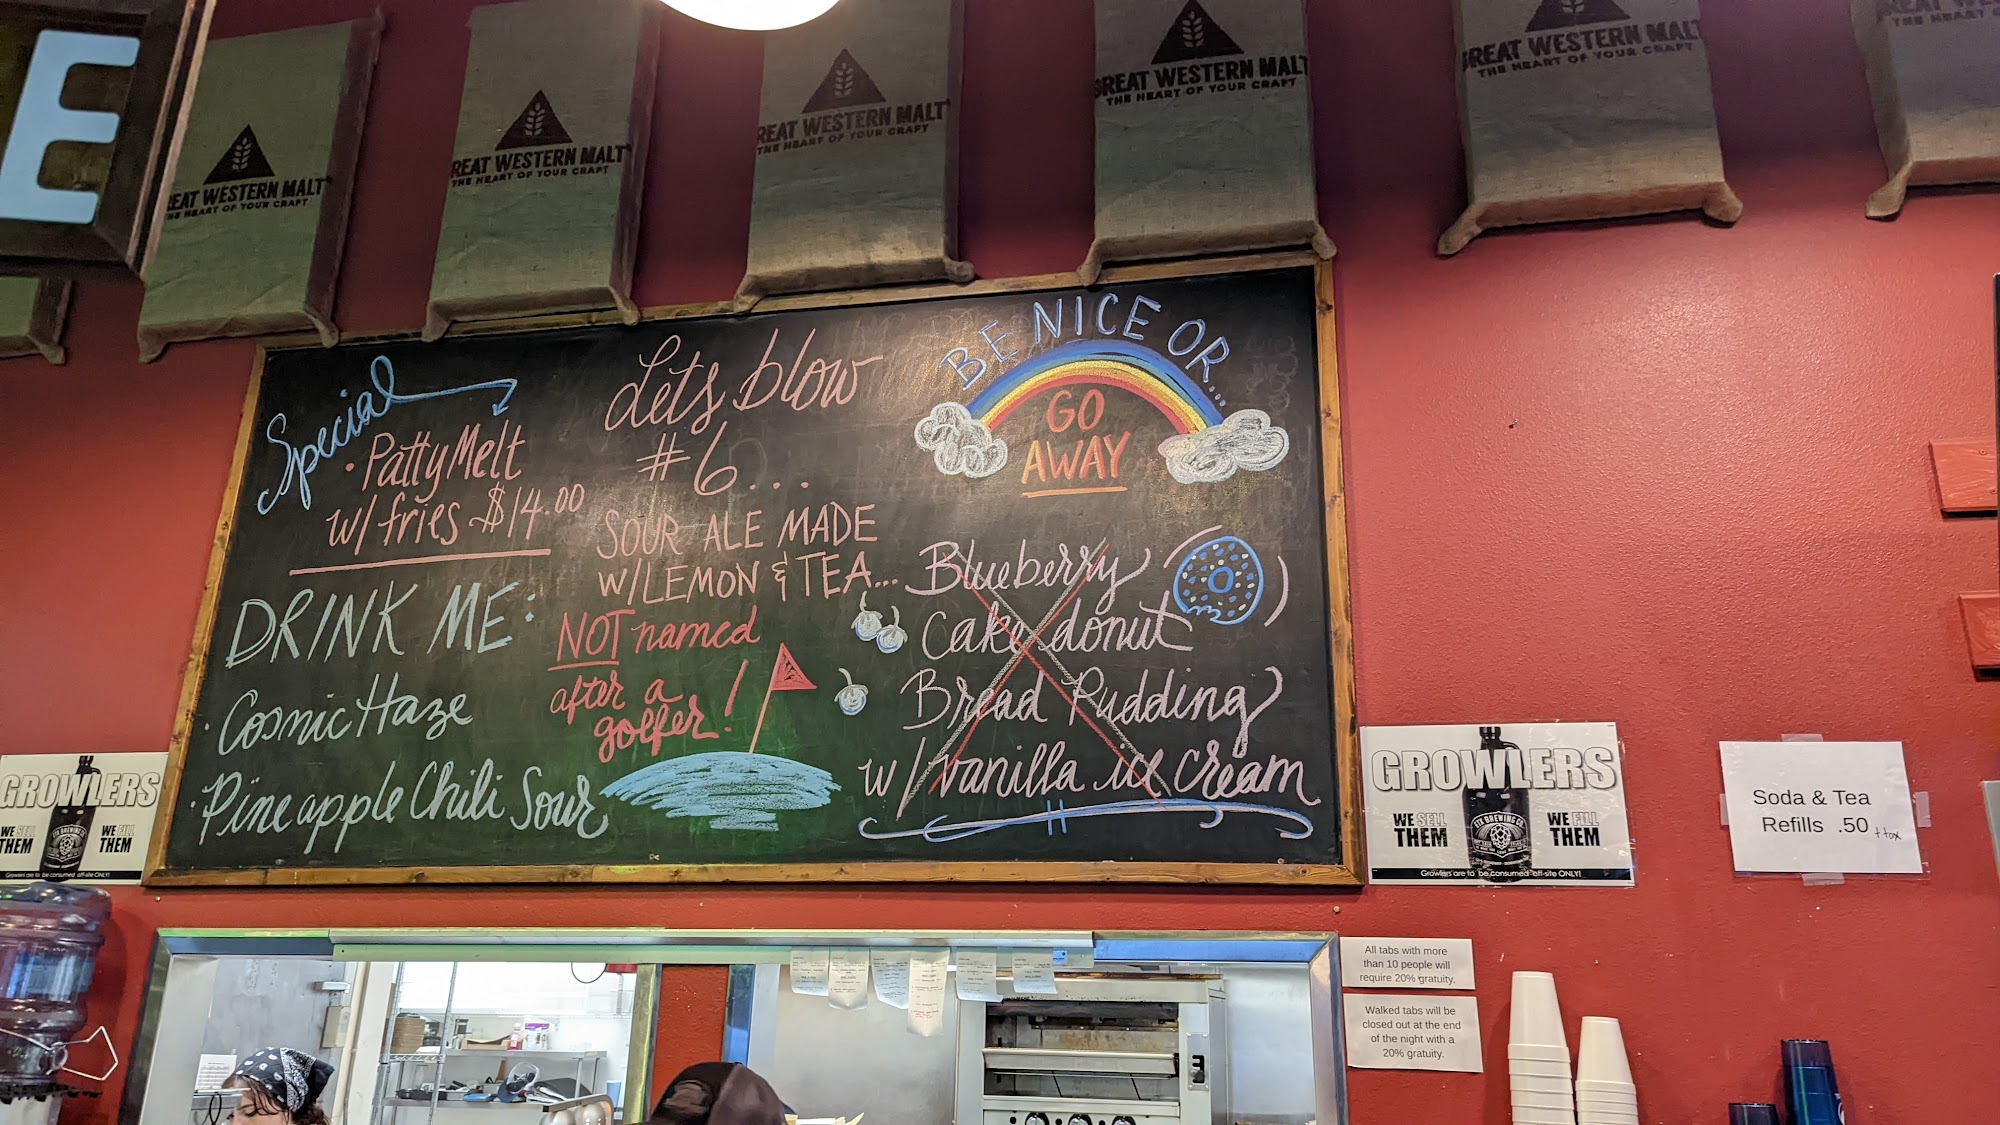 E
REAT WESTERN MALT
THE HEART OF YOUR CRAFT
REAT WESTERN MALT
THE HEART OF YOUR CRAFT
REAT WESTERN MALT
THE HEART OF YOUR CRAFT
GREAT WESTERN MALT
THE HEART OF YOUR CRAFT
GREAT WESTERN MALT
THE HEART OF YOUR CRAFT
Special
• Patty Melt
w/ fries $14.00
DRINK ME:
• Cosmic Haze
• Pineapple Chili Sour
Lets blow
#6...
SOUR ALE MADE
W/LEMON & TEA...
NOT named
after a
golfer!
BE NICE OR...
GO
AWAY
Blueberry
Cake donut
Bread Pudding
w/ vanilla ice cream
GROWLERS
WE SELL
THEM
WE FILL
THEM
Growlers are to be consumed off-site ONLY!
GROWLERS
WE SELL
THEM
WE FILL
THEM
BREWING CO.
Growlers are to be consumed off-site ONLY!
Soda & Tea
Refills .50 + tax
All tabs with more
than 10 people will
require 20% gratuity.
Walked tabs will be
closed out at the end
of the night with a
20% gratuity.